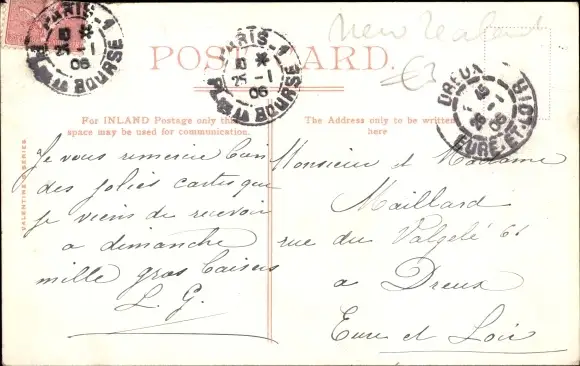 New Zealand
POST CARD.
€3
PARIS-1
10 *
25 -1
06
PL. DE LA BOURSE
PARIS-1
10 *
25 -1
06
PL. DE LA BOURSE
DREUX
26 -1
06
EURE-ET-LOIR
For INLAND Postage only this
space may be used for communication.
The Address only to be written
here
VALENTINE'S SERIES
Je vous remercie bien
des jolies cartes que
je viens de recevoir
a dimanche
mille gros baisers
L. G.
Monsieur et Madame
Maillard
rue du Valgelé 61
a Dreux
Eure et Loir